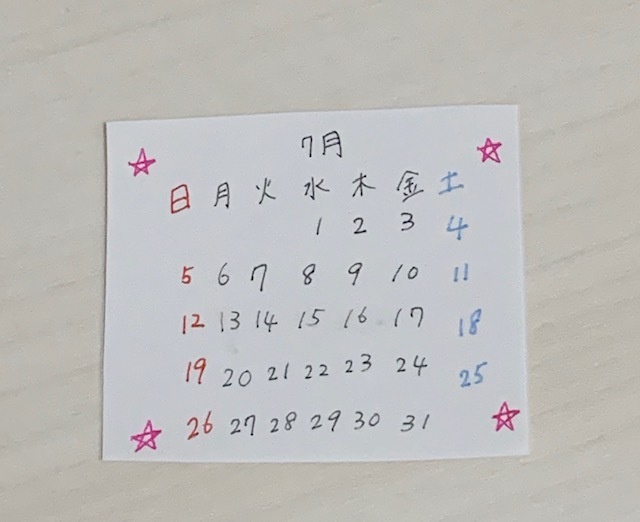 7月
日 月 火 水 木 金 土
1 2 3 4
5 6 7 8 9 10 11
12 13 14 15 16 17 18
19 20 21 22 23 24 25
26 27 28 29 30 31